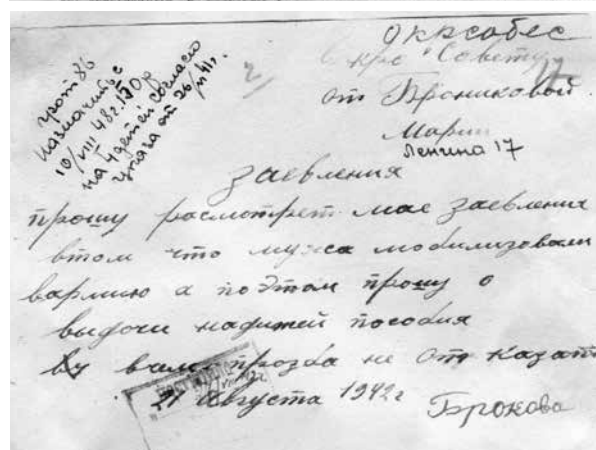 окрсобес
в крс Совет
от Брониковой
Марии
Ленина 17
прот 86
назначить с
10/VIII 42г. 150р
на 4 детей согласно
указа от 26/VI 41г.
2/
Заевления
прошу расмотрет мае заевления
втом что мужса мобилизовали
вармию а поэтом прошу о
выдочи надитей пособия
в прозба не от казат
21 Августа 1942г
Бронова